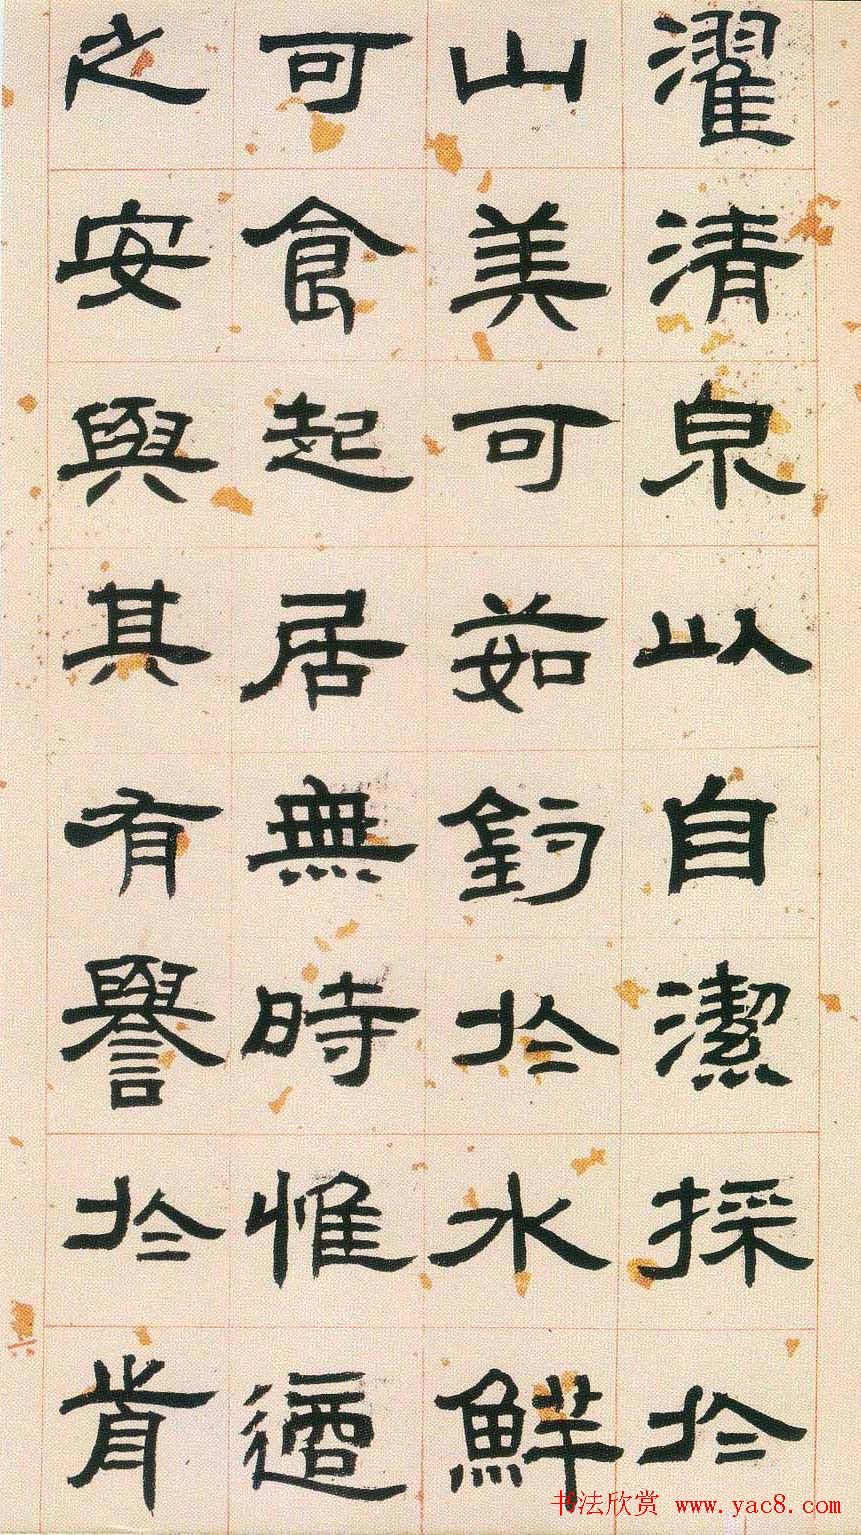 濯清泉以自潔採於
山美可茹釣於水鮮
可食起居無時惟適
之安與其有譽於前
书法欣赏 www.yac8.com